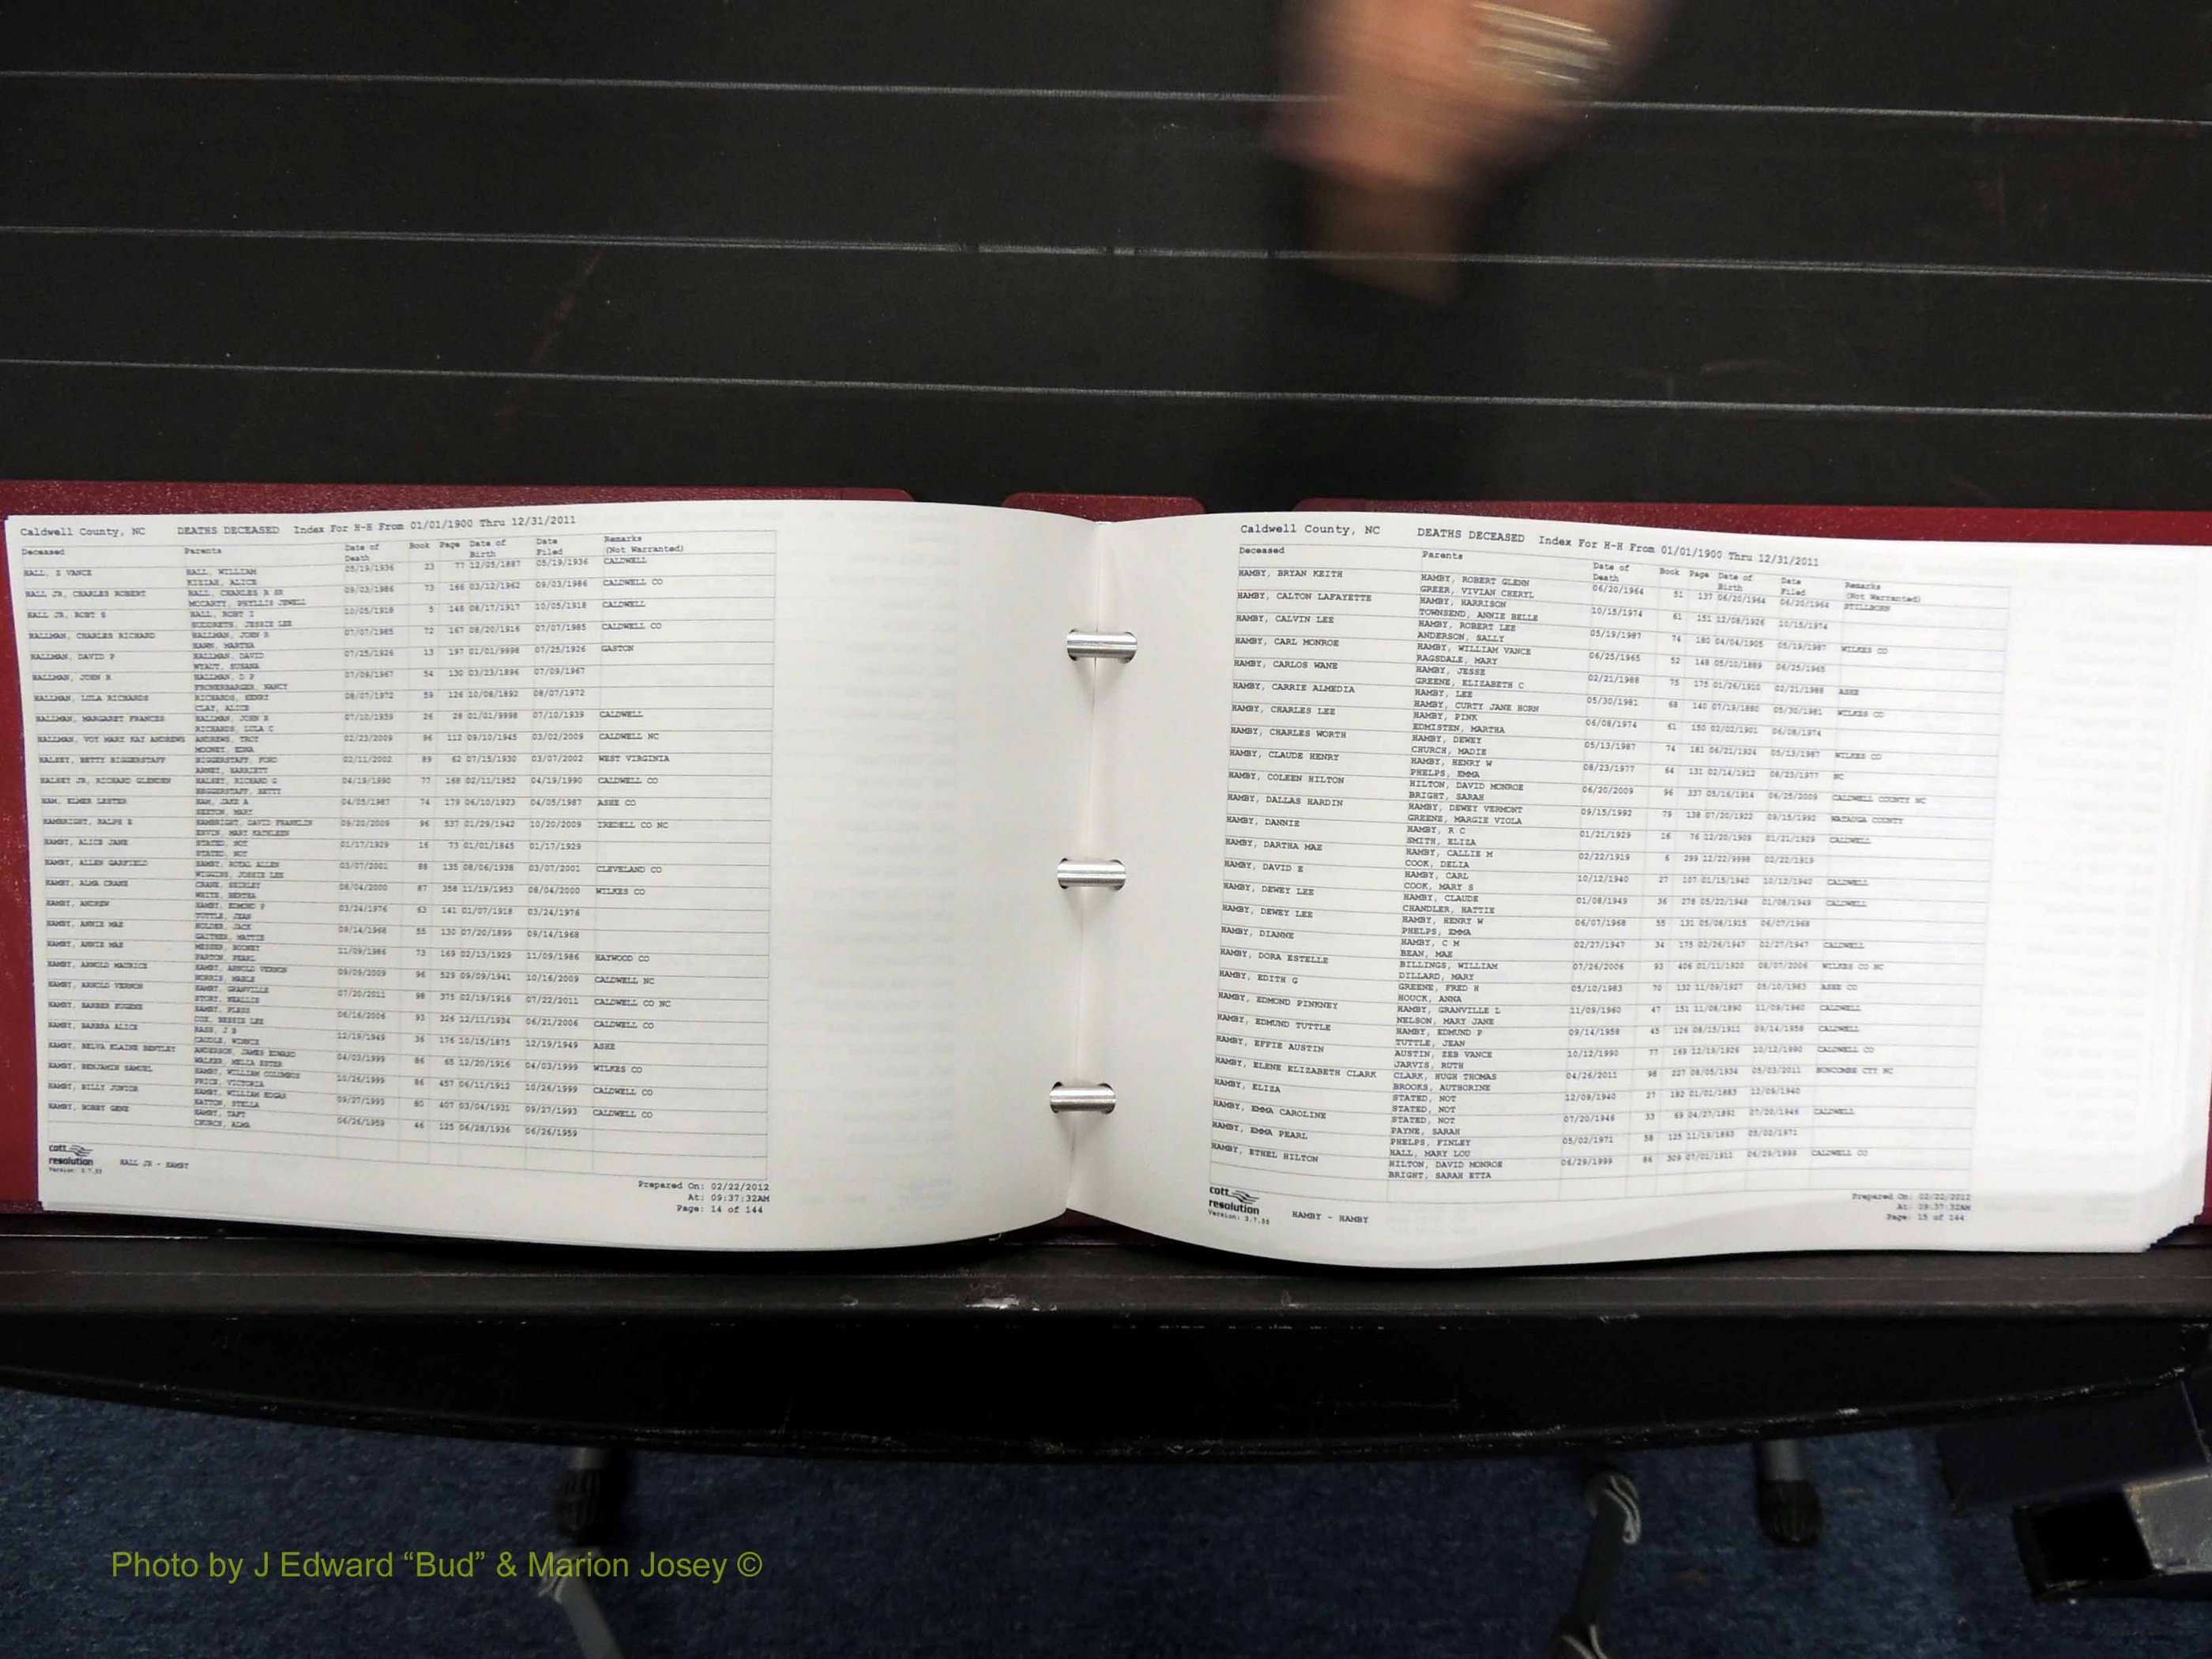 Caldwell County, NC DEATHS DECEASED Index For H-H From 01/01/1900 Thru 12/31/2011
Deceased Parents Date of Death Book Page Date of Birth Date Filed Remarks (Not Warranted)
HALL, Z VANCE HALL, WILLIAM 05/19/1936 23 77 12/05/1887 05/19/1936 CALDWELL
KIZIAH, ALICE
HALL JR, CHARLES ROBERT HALL, CHARLES R SR 09/03/1986 73 166 03/12/1962 09/03/1986 CALDWELL CO
MCCARTY, PHYLLIS JEWELL
HALL JR, ROBT S HALL, ROBT I 10/05/1918 5 148 08/17/1917 10/05/1918 CALDWELL
SUDDRETH, JESSIE LEE
HALLMAN, CHARLES RICHARD HALLMAN, JOHN R 07/07/1985 72 167 08/20/1916 07/07/1985 CALDWELL CO
HAWN, MARTHA
HALLMAN, DAVID P HALLMAN, DAVID 07/25/1926 13 197 01/01/9998 07/25/1926 GASTON
WYATT, SUSANA
HALLMAN, JOHN R HALLMAN, D P 07/09/1967 54 130 03/23/1896 07/09/1967
FRONEBARGER, NANCY
HALLMAN, LULA RICHARDS RICHARDS, HENRY 08/07/1972 59 126 10/08/1892 08/07/1972
CLAY, ALICE
HALLMAN, MARGARET FRANCES HALLMAN, JOHN R 07/10/1939 26 28 01/01/9998 07/10/1939 CALDWELL
RICHARDS, LULA C
HALLMAN, VOY MARY KAY ANDREWS ANDREWS, TROY 02/23/2009 96 112 09/10/1945 03/02/2009 CALDWELL NC
MOONEY, EDNA
HALSEY, BETTY BIGGERSTAFF BIGGERSTAFF, FORD 02/11/2002 89 62 07/15/1930 03/07/2002 WEST VIRGINIA
ARNEY, HARRIETT
HALSEY JR, RICHARD GLENDEN HALSEY, RICHARD G 04/19/1990 77 168 02/11/1952 04/19/1990 CALDWELL CO
BEGGERSTAFF, BETTY
HAM, ELMER LESTER HAM, JAKE A 04/05/1987 74 179 06/10/1923 04/05/1987 ASHE CO
SEXTON, MARY
HAMBRIGHT, RALPH E HAMBRIGHT, DAVID FRANKLIN 09/20/2009 96 537 01/29/1942 10/20/2009 IREDELL CO NC
ERVIN, MARY KATHLEEN
HAMBY, ALICE JANE STATED, NOT 01/17/1929 16 73 01/01/1845 01/17/1929
STATED, NOT
HAMBY, ALLEN GARFIELD HAMBY, ROYAL ALLEN 03/07/2001 88 135 08/06/1938 03/07/2001 CLEVELAND CO
WIGGINS, JOSSIE LEE
HAMBY, ALMA CRANE CRANE, SHIRLEY 08/04/2000 87 358 11/19/1953 08/04/2000 WILKES CO
WHITE, BERTHA
HAMBY, ANDREW HAMBY, EDMOND P 03/24/1976 63 141 01/07/1918 03/24/1976
TUTTLE, JEAN
HAMBY, ANNIE MAE HOLDER, JACK 09/14/1968 55 130 07/20/1899 09/14/1968
GAITHER, HATTIE
HAMBY, ANNIE MAE MESSER, BOONEY 11/09/1986 73 169 02/13/1929 11/09/1986 HAYWOOD CO
PARTON, PEARL
HAMBY, ARNOLD MAURICE HAMBY, ARNOLD VERNON 09/09/2009 96 529 09/09/1941 10/16/2009 CALDWELL NC
NORRIS, MABLE
HAMBY, ARNOLD VERNON HAMBY, GRANVILLE 07/20/2011 98 375 02/19/1916 07/22/2011 CALDWELL CO NC
STORY, NEALLIE
HAMBY, BARBER EUGENE HAMBY, PLESS 06/16/2006 93 326 12/11/1934 06/21/2006 CALDWELL CO
COX, BESSIE LEE
HAMBY, BARBRA ALICE BASS, J B 12/19/1949 36 176 10/15/1875 12/19/1949 ASHE
CAUDLE, WINNIE
HAMBY, BELVA ELAINE BENTLEY ANDERSON, JAMES EDWARD 04/03/1999 86 65 12/20/1916 04/03/1999 WILKES CO
WALKER, MELIA ESTER
HAMBY, BENJAMIN SAMUEL HAMBY, WILLIAM COLUMBUS 10/26/1999 86 457 06/11/1912 10/26/1999 CALDWELL CO
PRICE, VICTORIA
HAMBY, BILLY JUNIOR HAMBY, WILLIAM EDGAR 09/27/1993 80 407 03/04/1931 09/27/1993 CALDWELL CO
HATTON, STELLA
HAMBY, BOBBY GENE HAMBY, TAFT 06/26/1959 46 125 06/28/1936 06/26/1959
CHURCH, ALMA
cott
resolution HALL JR - HAMBY
Version: 3.7.55
Prepared On: 02/22/2012
At: 09:37:32AM
Page: 14 of 144
Caldwell County, NC DEATHS DECEASED Index For H-H From 01/01/1900 Thru 12/31/2011
Deceased Parents Date of Death Book Page Date of Birth Date Filed Remarks (Not Warranted)
HAMBY, BRYAN KEITH HAMBY, ROBERT GLENN 06/20/1964 51 137 06/20/1964 06/20/1964 STILLBORN
GREER, VIVIAN CHERYL
HAMBY, CALTON LAFAYETTE HAMBY, HARRISON 10/15/1974 61 151 12/08/1926 10/15/1974
TOWNSEND, ANNIE BELLE
HAMBY, CALVIN LEE HAMBY, ROBERT LEE 05/19/1987 74 180 04/04/1905 05/19/1987 WILKES CO
ANDERSON, SALLY
HAMBY, CARL MONROE HAMBY, WILLIAM VANCE 06/25/1965 52 148 05/10/1889 06/25/1965
RAGSDALE, MARY
HAMBY, CARLOS WANE HAMBY, JESSE 02/21/1988 75 175 01/26/1910 02/21/1988 ASHE
GREENE, ELIZABETH C
HAMBY, CARRIE ALMEDIA HAMBY, LEE 05/30/1981 68 140 07/19/1880 05/30/1981 WILKES CO
HAMBY, CURTY JANE HORN
HAMBY, CHARLES LEE HAMBY, PINK 06/08/1974 61 150 02/02/1901 06/08/1974
EDMISTEN, MARTHA
HAMBY, CHARLES WORTH HAMBY, DEWEY 05/13/1987 74 181 06/21/1924 05/13/1987 WILKES CO
CHURCH, MADIE
HAMBY, CLAUDE HENRY HAMBY, HENRY W 08/23/1977 64 131 02/14/1912 08/23/1977 NC
PHELPS, EMMA
HAMBY, COLEEN HILTON HILTON, DAVID MONROE 06/20/2009 96 337 05/16/1914 06/25/2009 CALDWELL COUNTY NC
BRIGHT, SARAH
HAMBY, DALLAS HARDIN HAMBY, DEWEY VERMONT 09/15/1992 79 138 07/20/1922 09/15/1992 WATAUGA COUNTY
GREENE, MARGIE VIOLA
HAMBY, DANNIE HAMBY, R C 01/21/1929 16 76 12/20/1909 01/21/1929 CALDWELL
SMITH, ELIZA
HAMBY, DARTHA MAE HAMBY, CALLIE M 02/22/1919 6 299 12/22/9998 02/22/1919
COOK, DELIA
HAMBY, DAVID E HAMBY, CARL 10/12/1940 27 107 01/15/1940 10/12/1940 CALDWELL
COOK, MARY S
HAMBY, DEWEY LEE HAMBY, CLAUDE 01/08/1949 36 278 05/22/1948 01/08/1949 CALDWELL
CHANDLER, HATTIE
HAMBY, DEWEY LEE HAMBY, HENRY W 06/07/1968 55 131 05/08/1915 06/07/1968
PHELPS, EMMA
HAMBY, DIANNE HAMBY, C M 02/27/1947 34 175 02/26/1947 02/27/1947 CALDWELL
BEAN, MAE
HAMBY, DORA ESTELLE BILLINGS, WILLIAM 07/26/2006 93 406 01/11/1920 08/07/2006 WILKES CO NC
DILLARD, MARY
HAMBY, EDITH G GREENE, FRED H 05/10/1983 70 132 11/09/1927 05/10/1983 ASHE CO
HOUCK, ANNA
HAMBY, EDMOND PINKNEY HAMBY, GRANVILLE L 11/09/1960 47 151 11/08/1890 11/09/1960 CALDWELL
NELSON, MARY JANE
HAMBY, EDMUND TUTTLE HAMBY, EDMUND P 09/14/1958 45 126 08/15/1911 09/14/1958 CALDWELL
TUTTLE, JEAN
HAMBY, EFFIE AUSTIN AUSTIN, ZEB VANCE 10/12/1990 77 169 12/19/1926 10/12/1990 CALDWELL CO
JARVIS, RUTH
HAMBY, ELENE ELIZABETH CLARK CLARK, HUGH THOMAS 04/26/2011 98 227 08/05/1934 05/03/2011 BUNCOMBE CTY NC
BROOKS, AUTHORINE
HAMBY, ELIZA STATED, NOT 12/09/1940 27 182 01/01/1883 12/09/1940
STATED, NOT
HAMBY, EMMA CAROLINE STATED, NOT 07/20/1946 33 69 04/27/1891 07/20/1946 CALDWELL
PAYNE, SARAH
HAMBY, EMMA PEARL PHELPS, FINLEY 05/02/1971 58 125 11/19/1893 05/02/1971
HALL, MARY LOU
HAMBY, ETHEL HILTON HILTON, DAVID MONROE 06/29/1999 86 309 07/01/1911 06/29/1999 CALDWELL CO
BRIGHT, SARAH ETTA
cott
resolution HAMBY - HAMBY
Version: 3.7.55
Prepared On: 02/22/2012
At: 09:37:32AM
Page: 15 of 144
Photo by J Edward “Bud” & Marion Josey ©